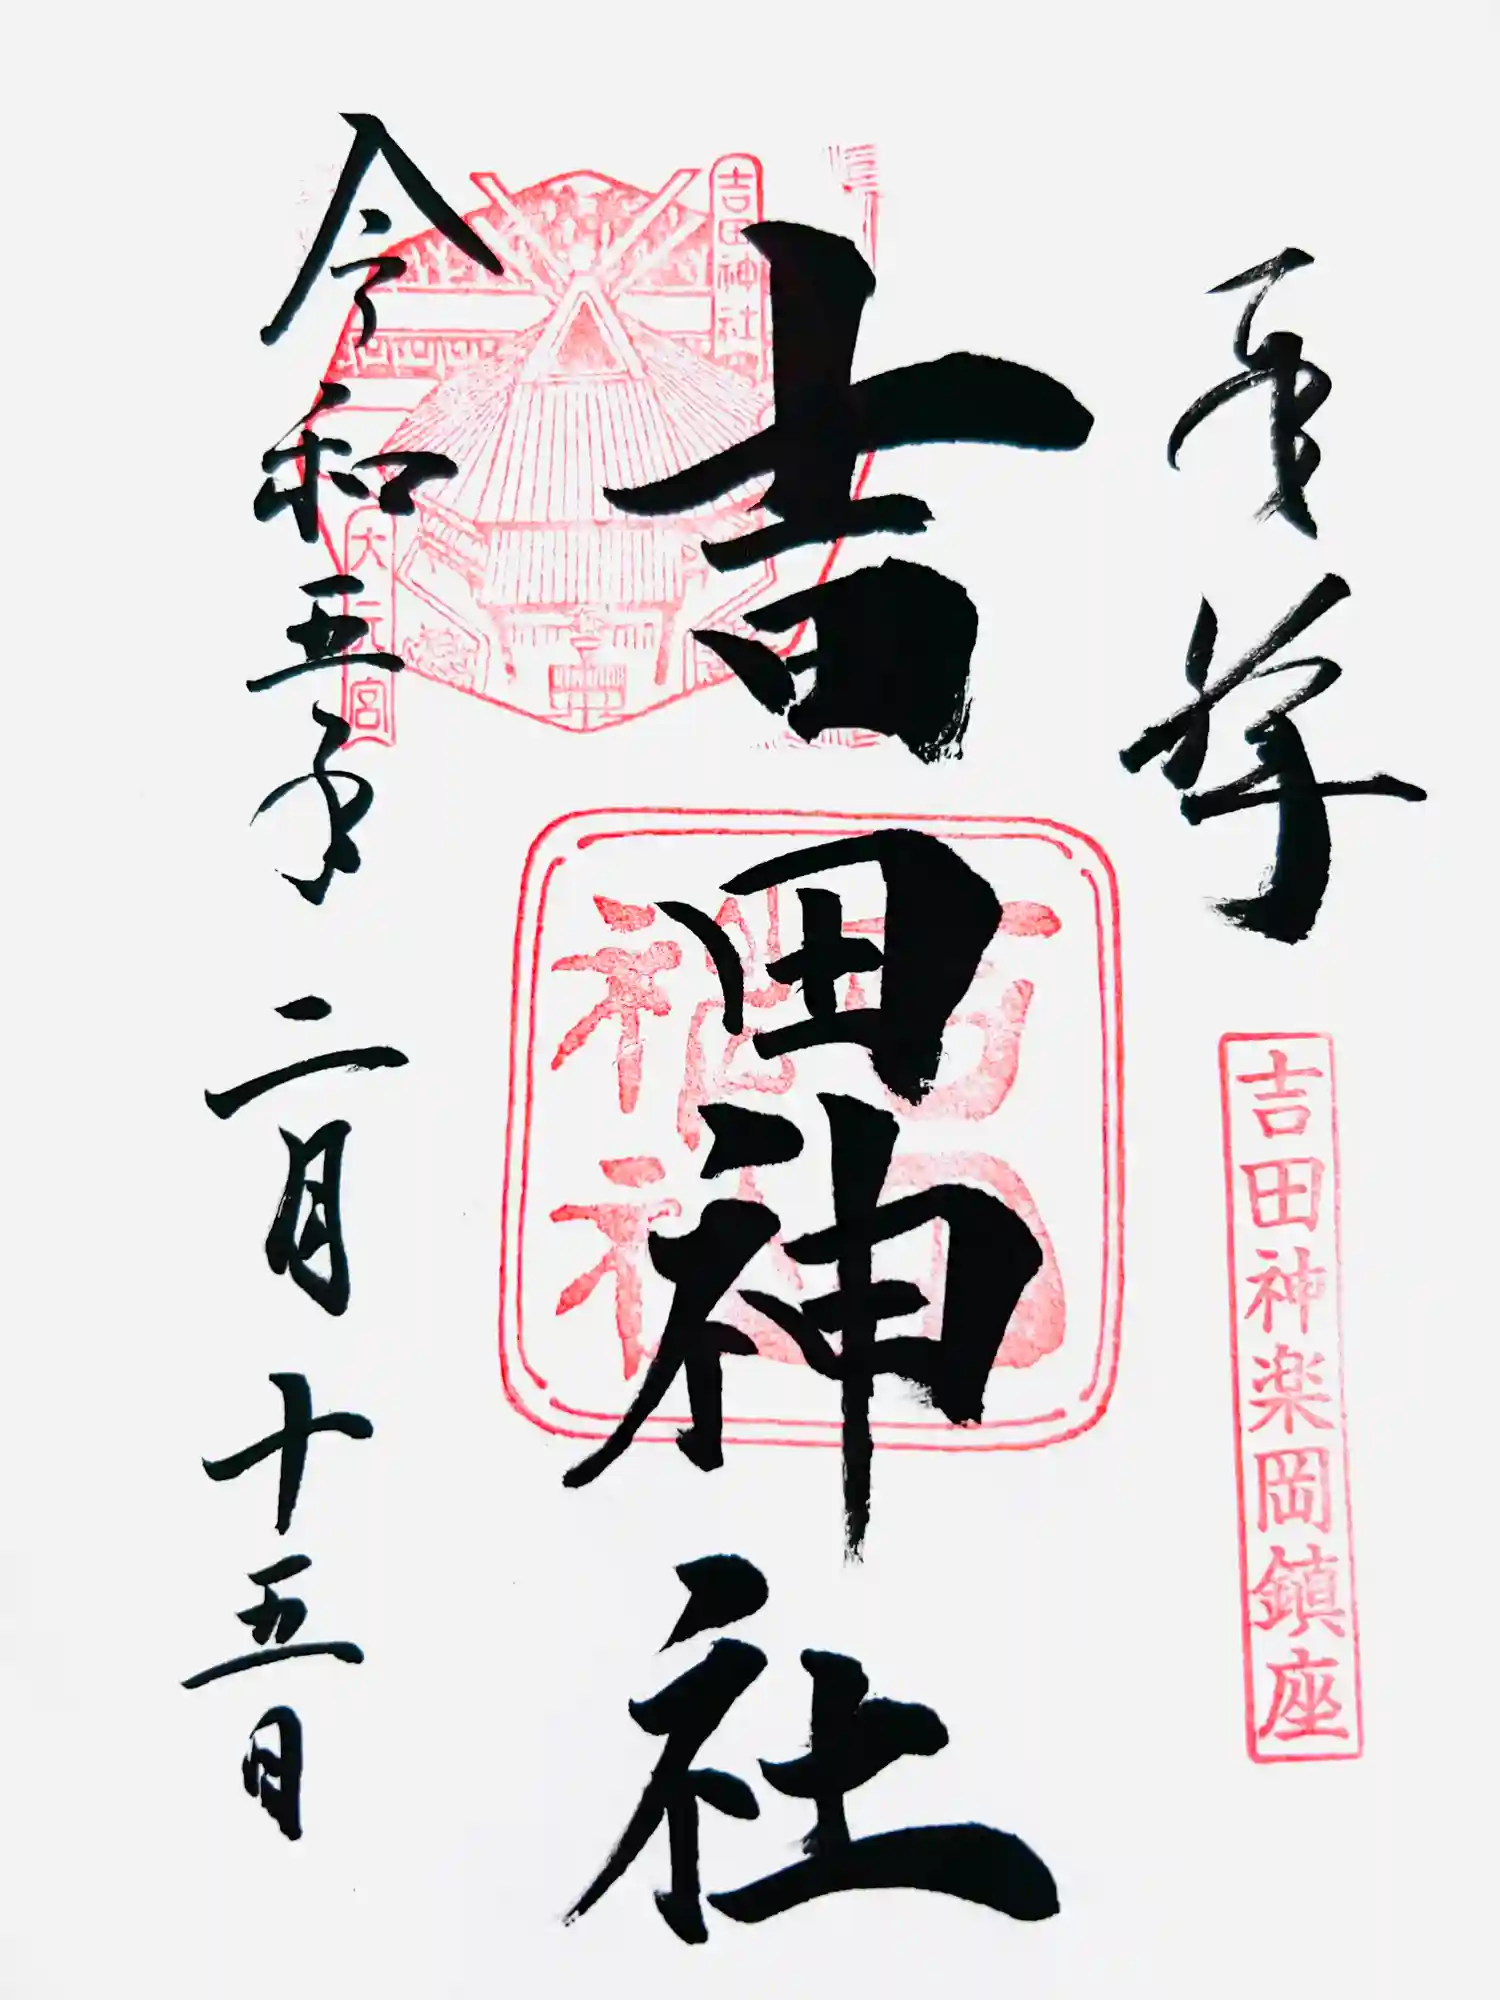 奉拝
吉田神楽岡鎮座
吉田神社
吉田神社
大元宮
吉田神社
令和五年二月十五日